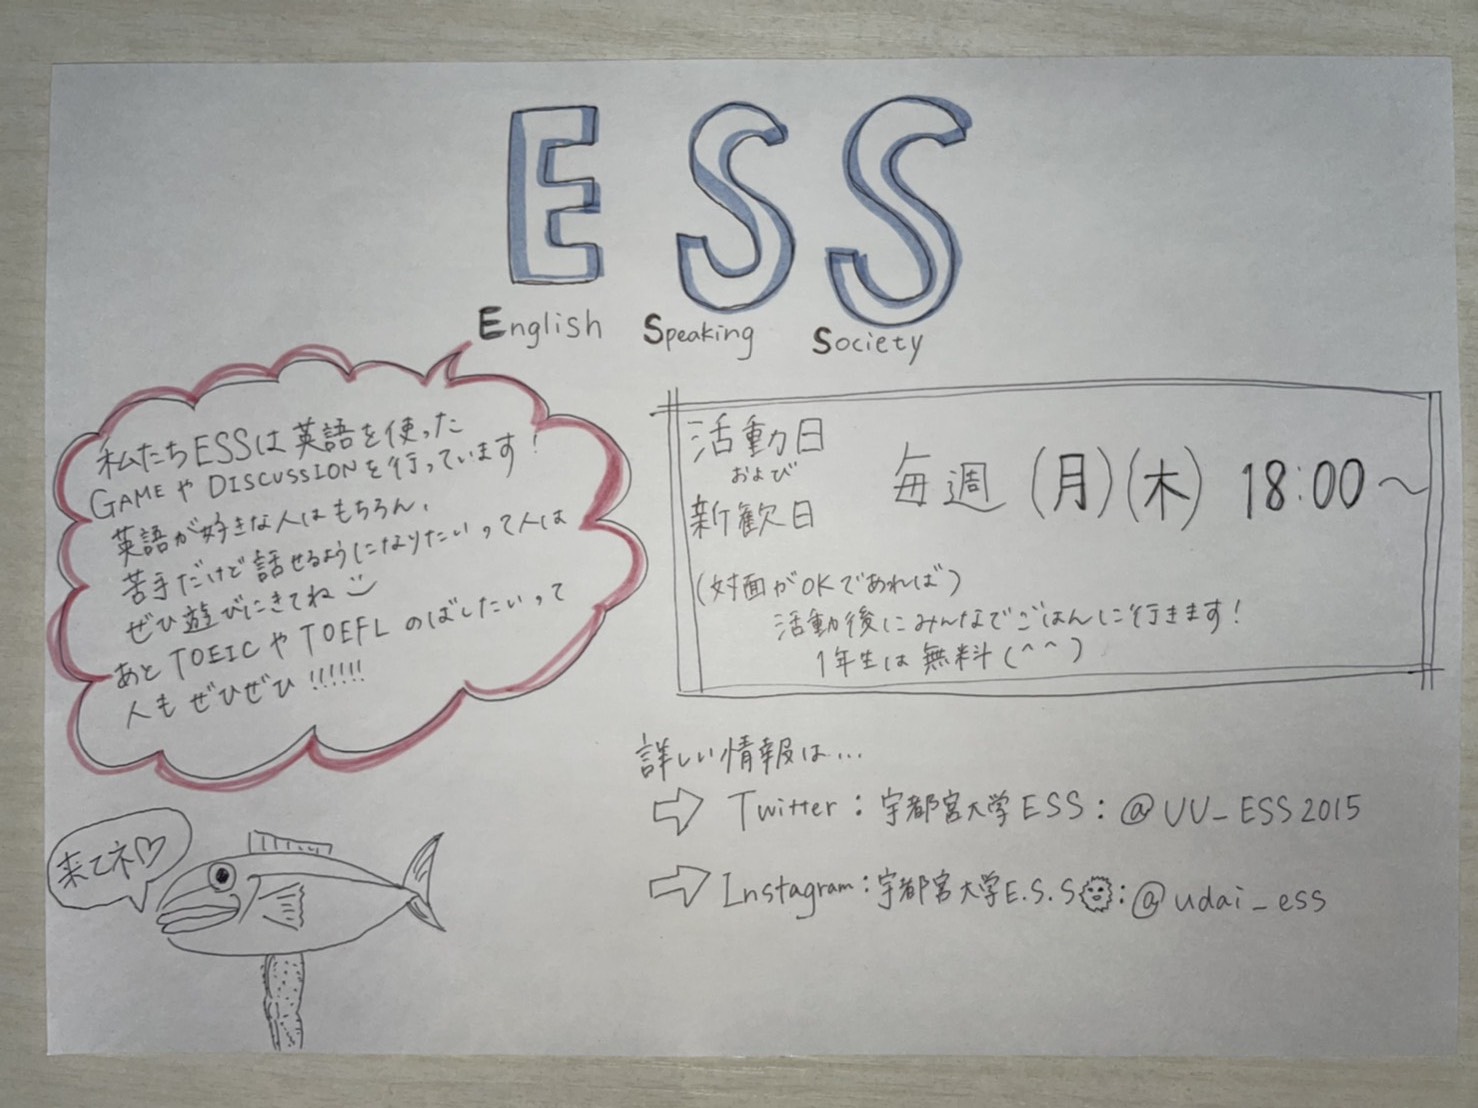 ESS
English Speaking Society
私たちESSは英語を使った
GAMEやDISCUSSIONを行っています！
英語が好きな人はもちろん、
苦手だけど話せるようになりたいって人は
ぜひ遊びにきてね
あとTOEICやTOEFLのばしたいって
人もぜひぜひ!!!!!!
活動日
および
新歓日
毎週(月)(木) 18:00～
(対面がOKであれば)
活動後にみんなでごはんに行きます！
1年生は無料(^^)
詳しい情報は…
⇨ Twitter：宇都宮大学ESS：@UU_ESS2015
⇨ Instagram：宇都宮大学E.S.S：@udai_ess
来てネ♡